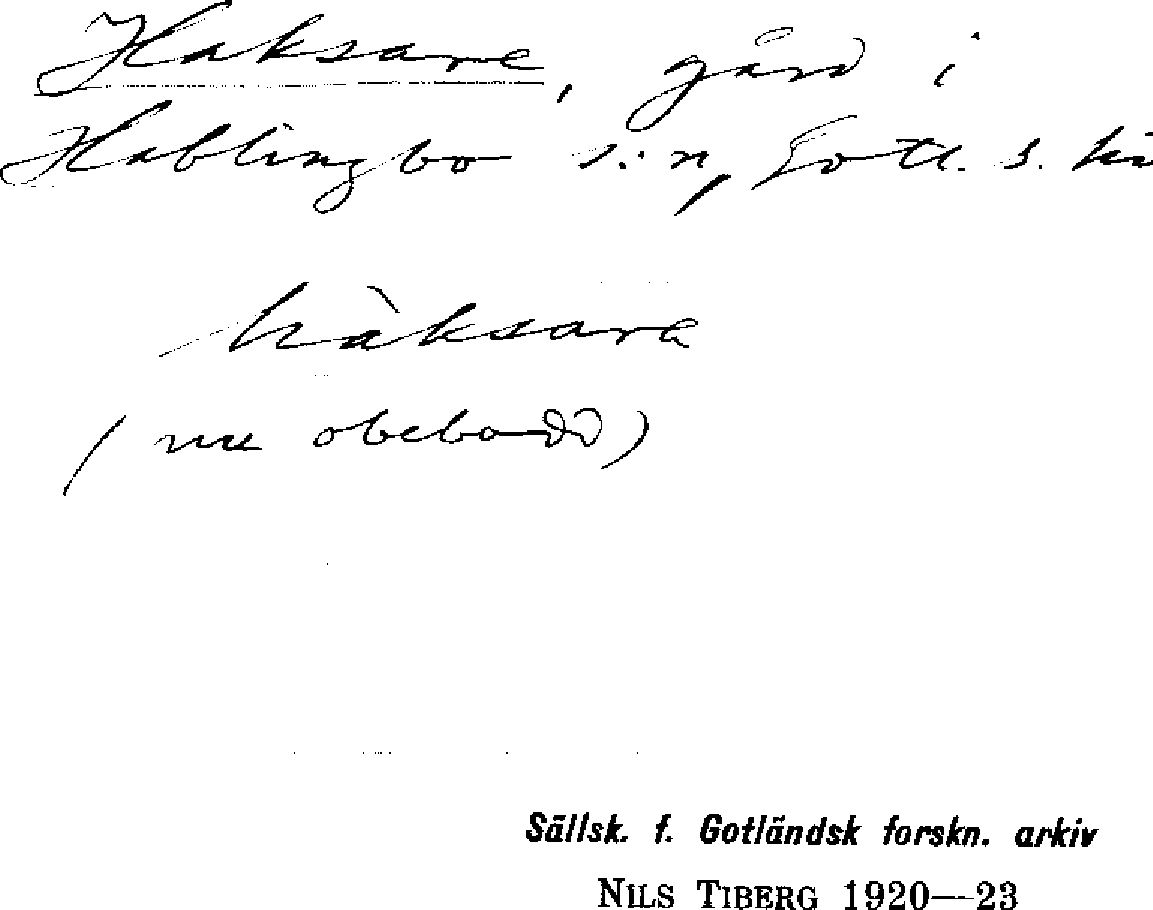 Haksare, gård i
Hablingbo s:n, Gotl. s. hä
hàksara
(nu obebodd)
Sällsk. f. Gotländsk forskn. arkiv
NILS TIBERG 1920—23